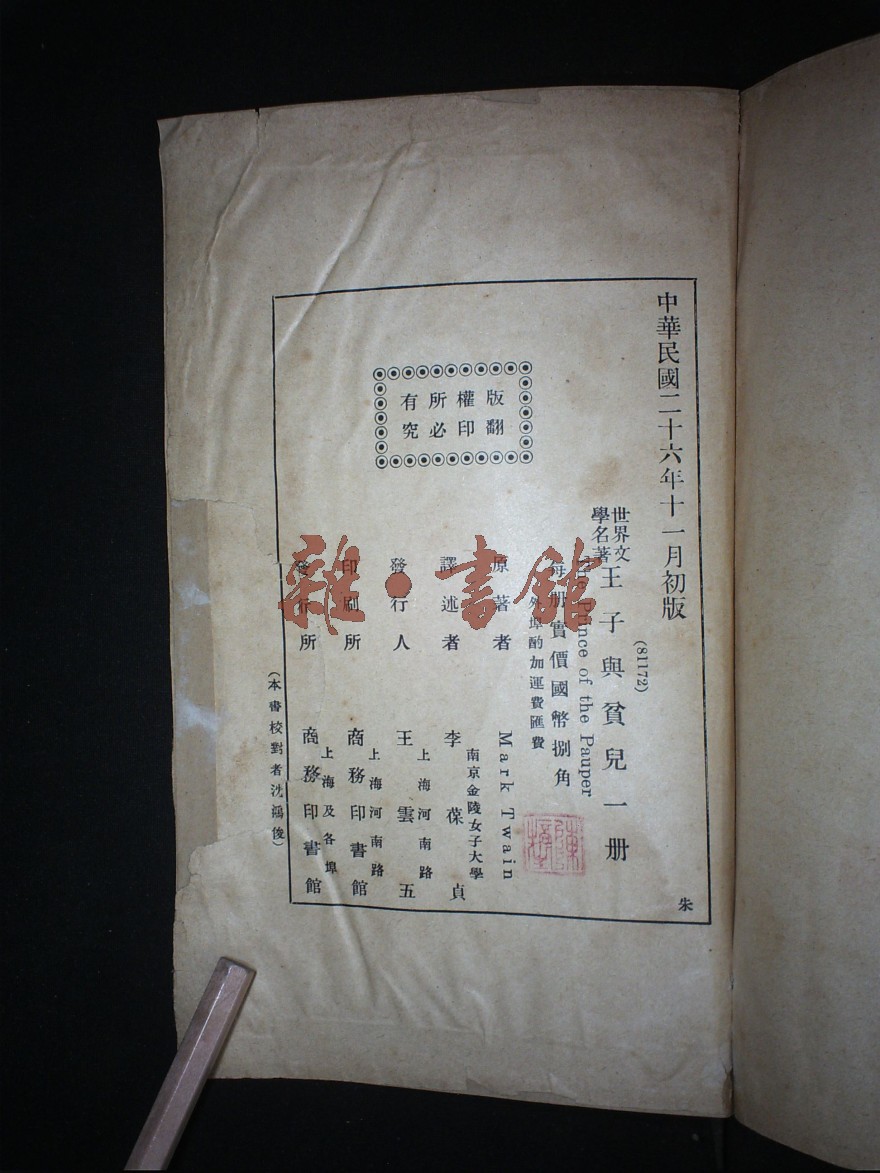 中華民國二十六年十一月初版
(81172)
世界文
學名著
王子與貧兒一册
The Prince of the Pauper
每册實價國幣捌角
外埠酌加運費匯費
版權所有
翻印必究
原著者 Mark Twain
南京金陵女子大學
譯述者 李葆貞
上海河南路
發行人 王雲五
上海河南路
印刷所 商務印書館
上海及各埠
發行所 商務印書館
(本書校對者沈鴻俊)
朱
雜·書館